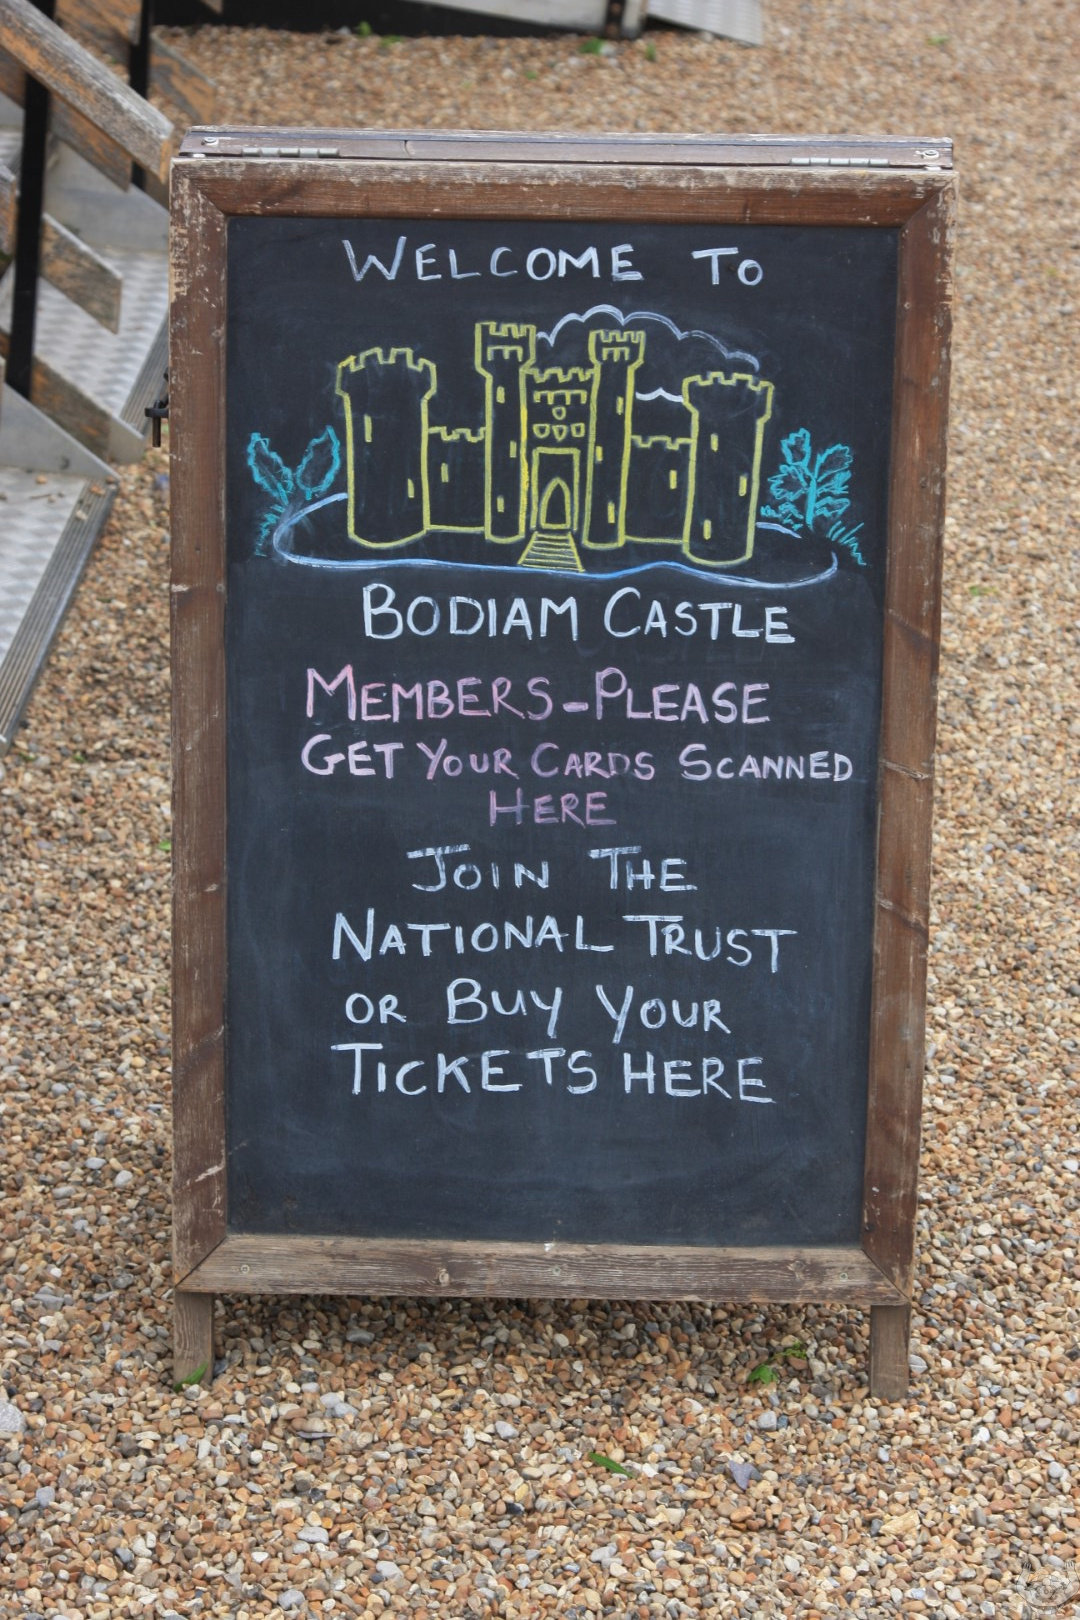 WELCOME TO
BODIAM CASTLE
MEMBERS-PLEASE
GET YOUR CARDS SCANNED
HERE
JOIN THE
NATIONAL TRUST
OR BUY YOUR
TICKETS HERE